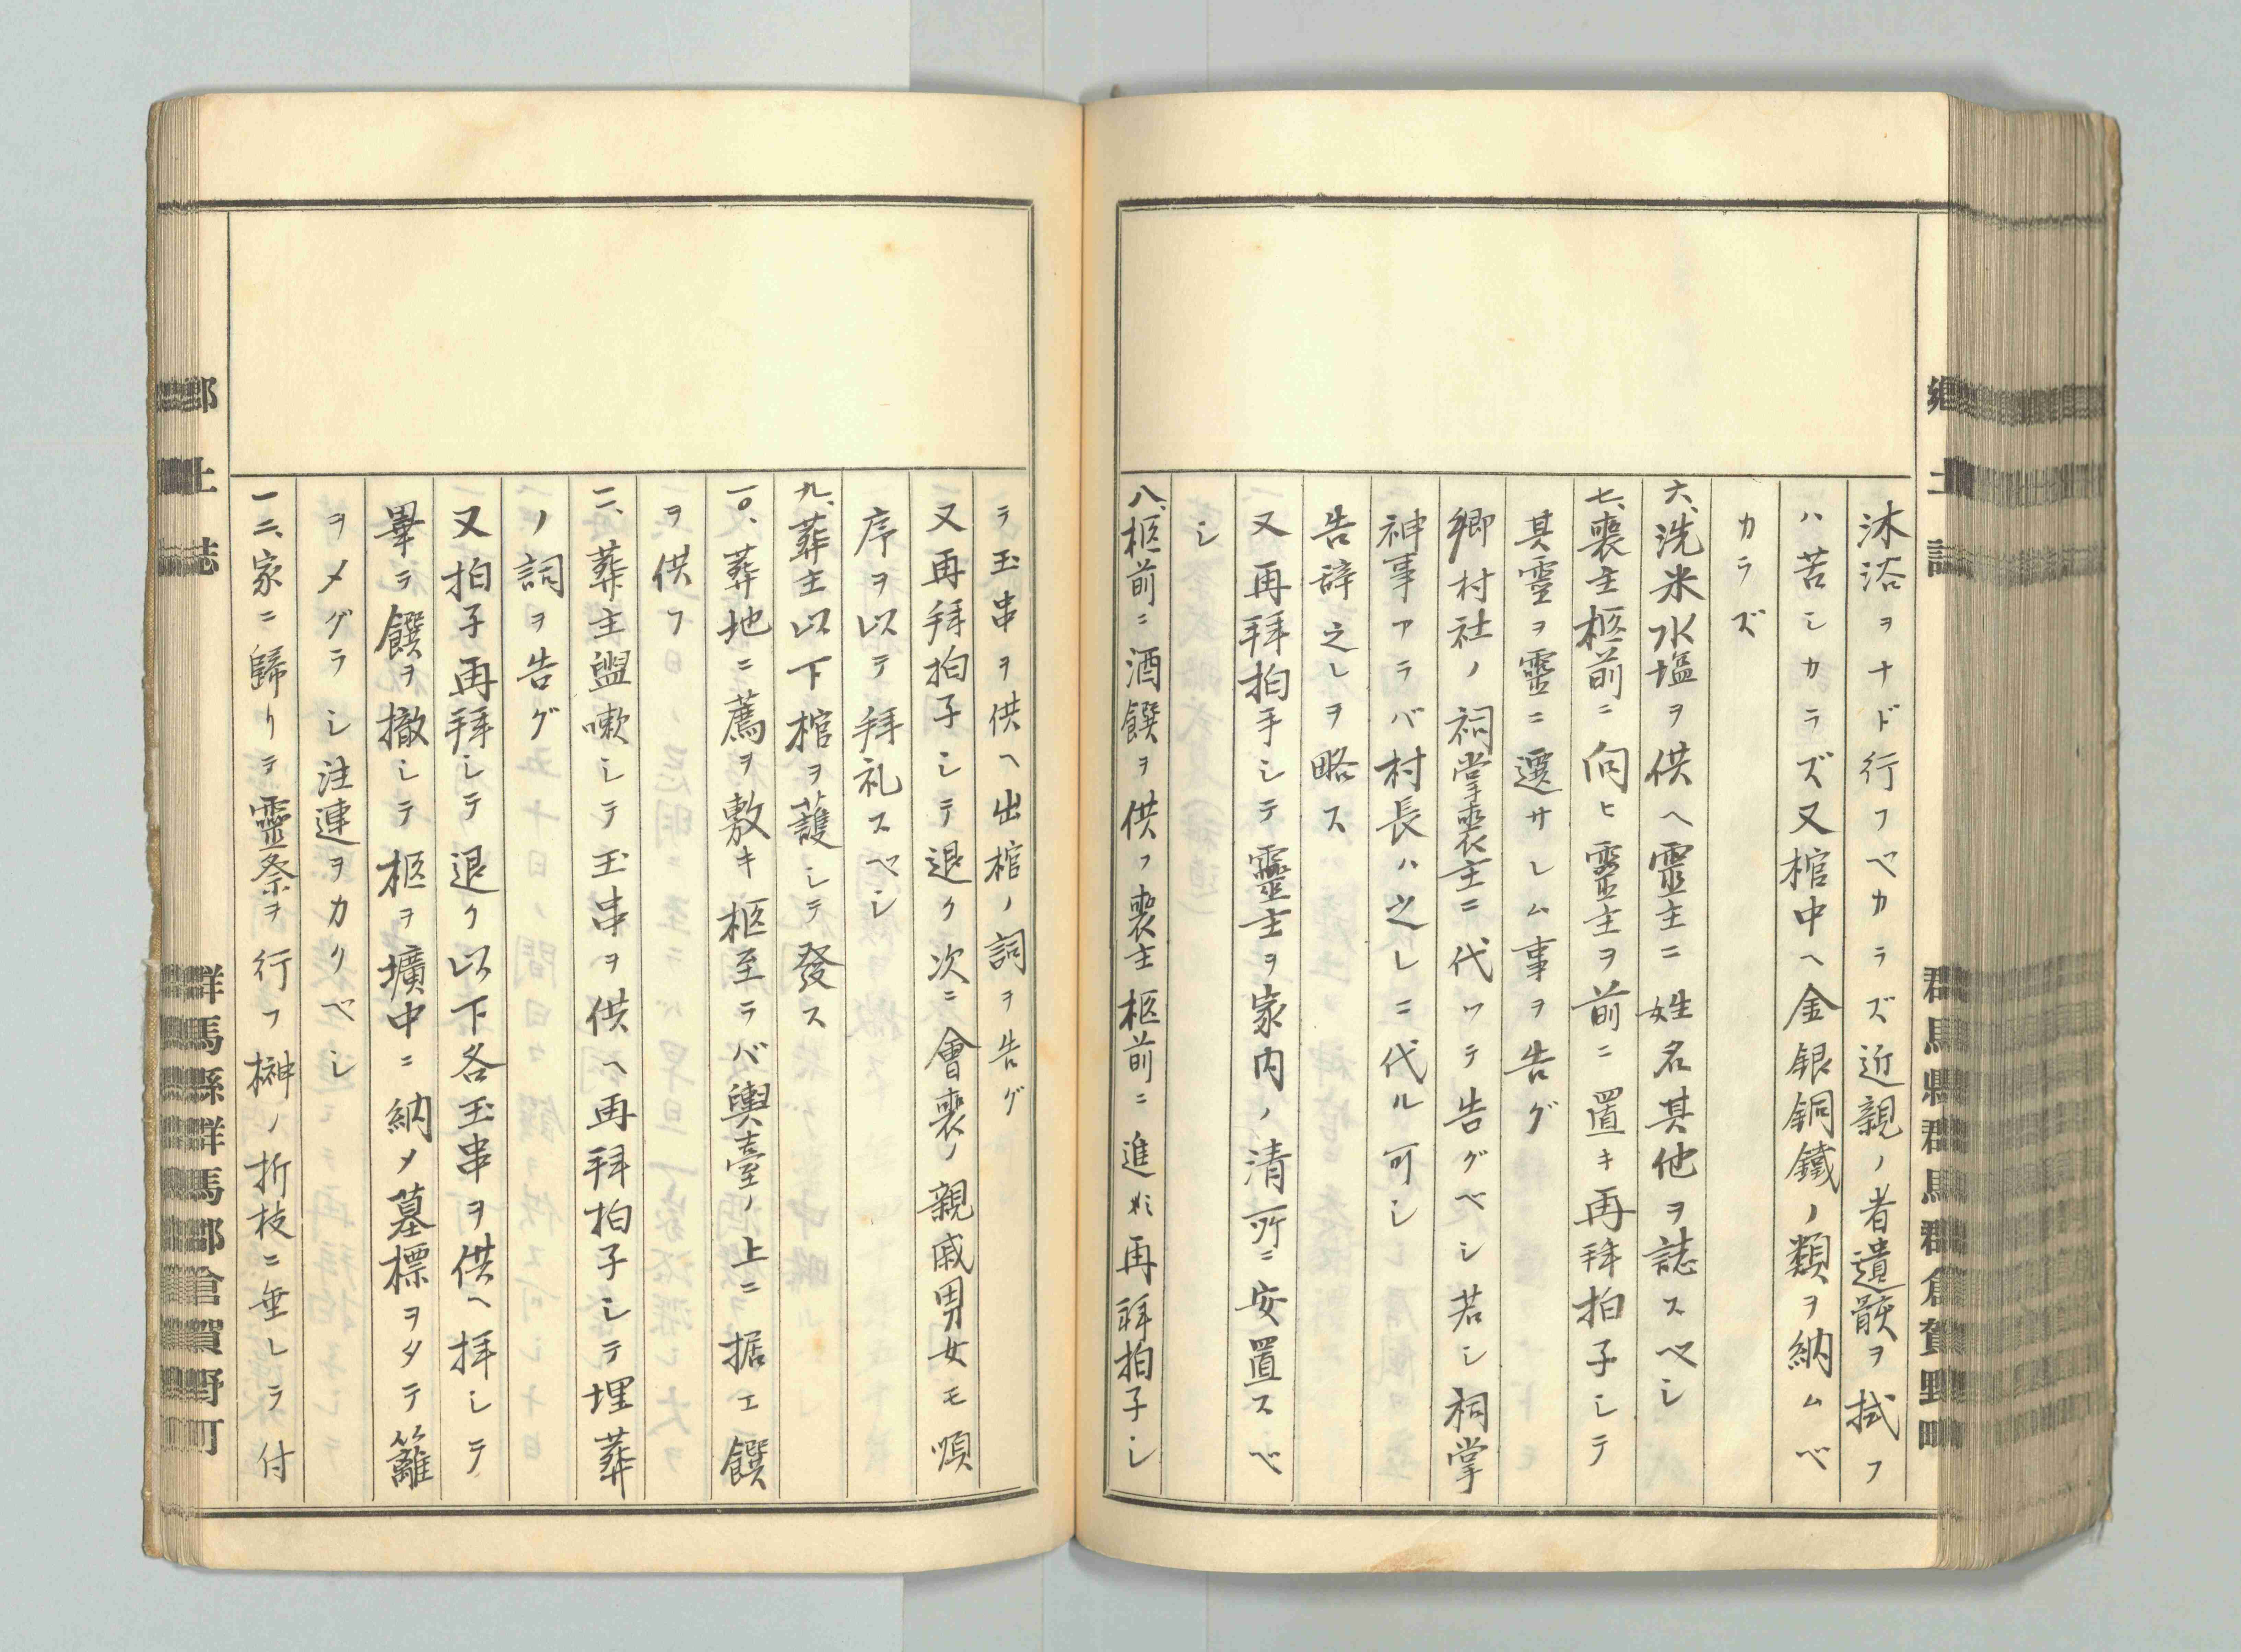 郷土誌
群馬縣群馬郡倉賀野町
沐浴ヲナド行フベカラズ近親ノ者遺骸ヲ拭フ
ハ苦シカラズ又棺中ヘ金銀銅鐵ノ類ヲ納ムベ
カラズ
六、洗米水塩ヲ供ヘ靈主ニ姓名其他ヲ誌スベシ
七、喪主柩前ニ向ヒ靈主ヲ前ニ置キ再拜拍子シテ
其靈ヲ靈ニ遷サレム事ヲ告グ
郷村社ノ祠掌喪主ニ代ツテ告グベシ若シ祠掌
神事アラバ村長ハ之レニ代ル可シ
告辞之レヲ略ス
又再拜拍手シテ靈主ヲ家内ノ清所ニ安置スベ
シ
八、柩前ニ酒饌ヲ供フ喪主柩前ニ進ミ再拜拍子シ
テ玉串ヲ供ヘ出棺ノ詞ヲ告グ
又再拜拍子シテ退ク次ニ會喪ノ親戚男女モ順
序ヲ以テ拜礼スベシ
九、葬主以下棺ヲ護シテ發ス
一〇、葬地ニ薦ヲ敷キ柩至ラバ輿臺ノ上ニ据エ饌
ヲ供フ
一一、葬主盥嗽シテ玉串ヲ供ヘ再拜拍子シテ埋葬
ノ詞ヲ告グ
又拍子再拜シテ退ク以下各玉串ヲ供ヘ拝シテ
畢ラ饌ヲ撤シテ柩ヲ壙中ニ納メ墓標ヲタテ籬
ヲメグラシ注連ヲカクベシ
一二、家ニ歸リテ靈祭ヲ行フ榊ノ折枝ニ垂レヲ付
郷土誌
群馬縣群馬郡倉賀野町